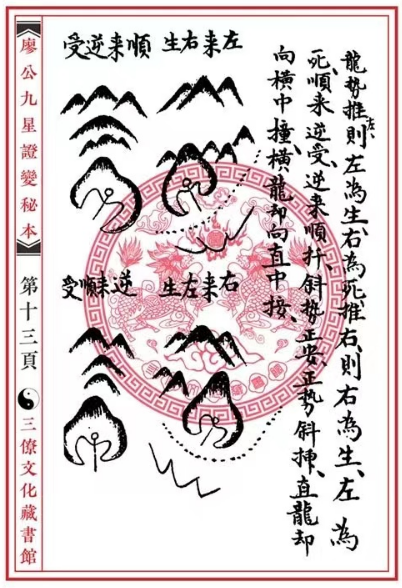 龍勢推左則左為生、右為死推右、則右為生、左為
死、順来逆受、逆来順扦、斜勢正安、正勢斜挿、直龍却
向橫中撞、橫龍却向直中接、
左来右生
順来逆受
右来左生
逆来順受
廖公九星證變秘本
第十三頁
三僚文化藏書館